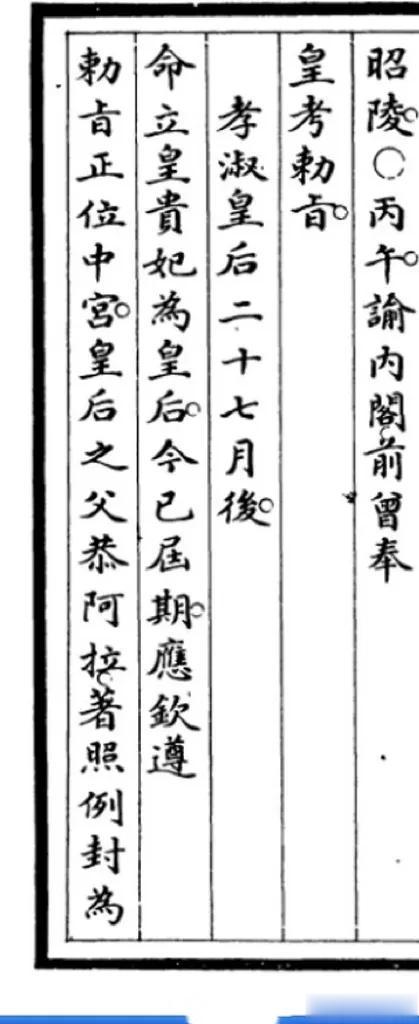 昭陵。○丙午。諭內閣前曾奉
皇考勅旨。
孝淑皇后二十七月後。
命立皇貴妃為皇后。今已屆期。應欽遵
勅旨正位中宮。皇后之父恭阿拉。著照例封為